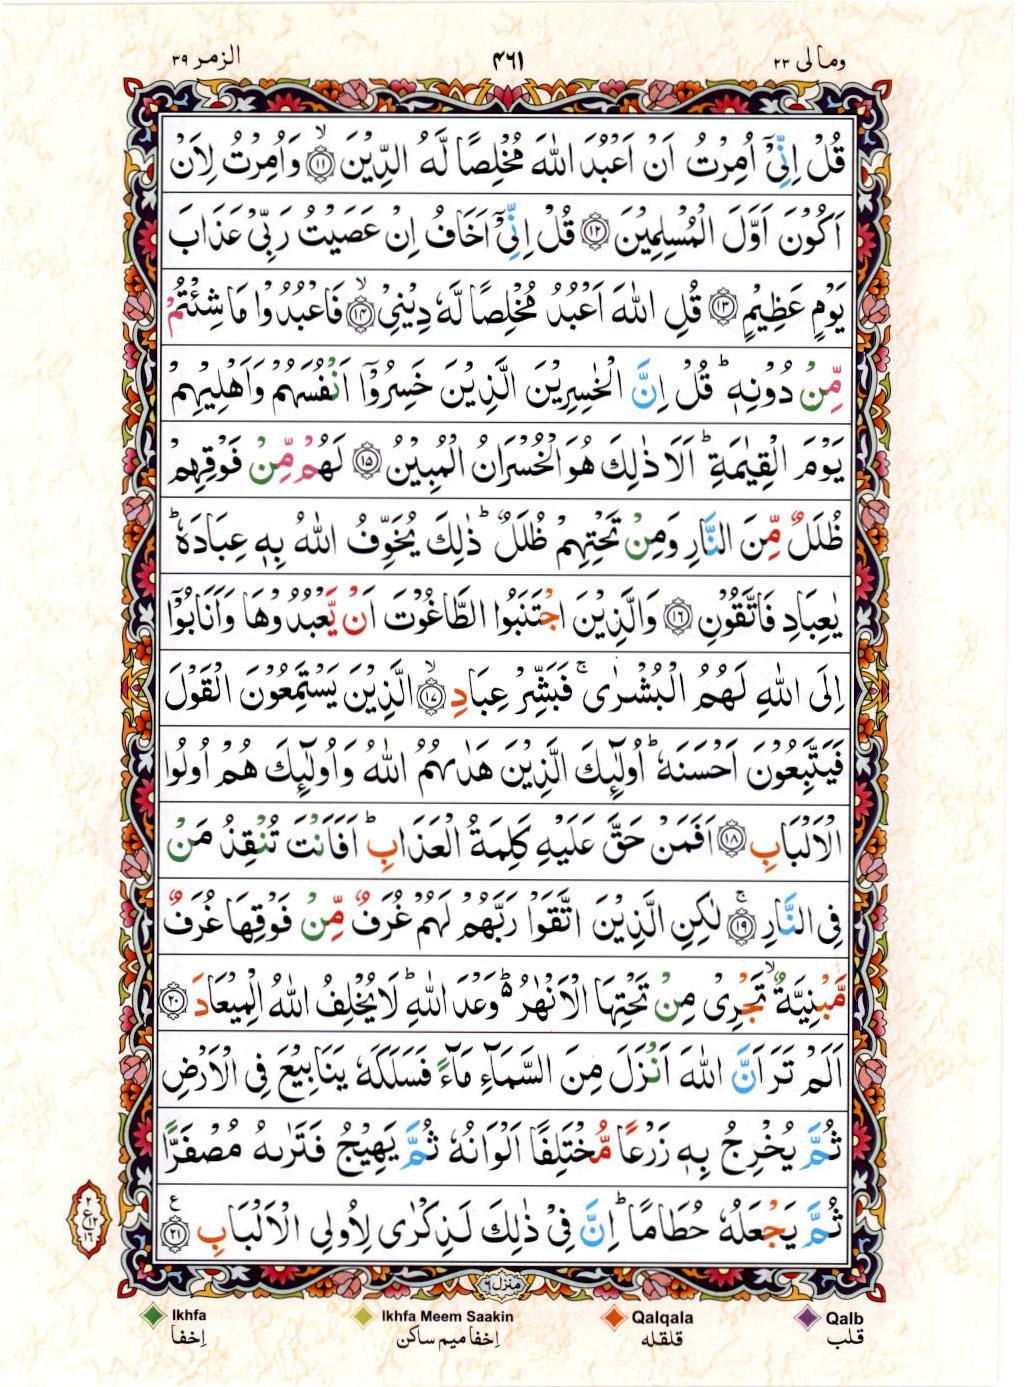 الزمر ۳۹
۴۶۱
ومالی ۲۳
قُلْ اِنِّیْۤ اُمِرْتُ اَنْ اَعْبُدَ اللّٰهَ مُخْلِصًا لَّهُ الدِّیْنَ ۙ﴿۱۱﴾ وَاُمِرْتُ لِاَنْ
اَكُوْنَ اَوَّلَ الْمُسْلِمِیْنَ ﴿۱۲﴾ قُلْ اِنِّیْۤ اَخَافُ اِنْ عَصَیْتُ رَبِّیْ عَذَابَ
یَوْمٍ عَظِیْمٍ ﴿۱۳﴾ قُلِ اللّٰهَ اَعْبُدُ مُخْلِصًا لَّهٗ دِیْنِیْ ۙ﴿۱۴﴾ فَاعْبُدُوْا مَا شِئْتُمْ
مِّنْ دُوْنِهٖ ؕ قُلْ اِنَّ الْخٰسِرِیْنَ الَّذِیْنَ خَسِرُوْۤا اَنْفُسَهُمْ وَاَهْلِیْهِمْ
یَوْمَ الْقِیٰمَةِ ؕ اَلَا ذٰلِكَ هُوَ الْخُسْرَانُ الْمُبِیْنُ ﴿۱۵﴾ لَهُمْ مِّنْ فَوْقِهِمْ
ظُلَلٌ مِّنَ النَّارِ وَمِنْ تَحْتِهِمْ ظُلَلٌ ؕ ذٰلِكَ یُخَوِّفُ اللّٰهُ بِهٖ عِبَادَهٗ ؕ
یٰعِبَادِ فَاتَّقُوْنِ ﴿۱۶﴾ وَالَّذِیْنَ اجْتَنَبُوا الطَّاغُوْتَ اَنْ یَّعْبُدُوْهَا وَاَنَابُوْۤا
اِلَی اللّٰهِ لَهُمُ الْبُشْرٰی ۚ فَبَشِّرْ عِبَادِ ۙ﴿۱۷﴾ الَّذِیْنَ یَسْتَمِعُوْنَ الْقَوْلَ
فَیَتَّبِعُوْنَ اَحْسَنَهٗ ؕ اُولٰٓئِكَ الَّذِیْنَ هَدٰىهُمُ اللّٰهُ وَاُولٰٓئِكَ هُمْ اُولُوا
الْاَلْبَابِ ﴿۱۸﴾ اَفَمَنْ حَقَّ عَلَیْهِ كَلِمَةُ الْعَذَابِ ؕ اَفَاَنْتَ تُنْقِذُ مَنْ
فِی النَّارِ ۚ﴿۱۹﴾ لٰكِنِ الَّذِیْنَ اتَّقَوْا رَبَّهُمْ لَهُمْ غُرَفٌ مِّنْ فَوْقِهَا غُرَفٌ
مَّبْنِیَّةٌ ۙ تَجْرِیْ مِنْ تَحْتِهَا الْاَنْهٰرُ ؕ۬ وَعْدَ اللّٰهِ ؕ لَا یُخْلِفُ اللّٰهُ الْمِیْعَادَ ﴿۲۰﴾
اَلَمْ تَرَ اَنَّ اللّٰهَ اَنْزَلَ مِنَ السَّمَآءِ مَآءً فَسَلَكَهٗ یَنَابِیْعَ فِی الْاَرْضِ
ثُمَّ یُخْرِجُ بِهٖ زَرْعًا مُّخْتَلِفًا اَلْوَانُهٗ ثُمَّ یَهِیْجُ فَتَرٰىهُ مُصْفَرًّا
ثُمَّ یَجْعَلُهٗ حُطَامًا ؕ اِنَّ فِیْ ذٰلِكَ لَذِكْرٰی لِاُولِی الْاَلْبَابِ ﴿۲۱﴾ ع
۲
ع
۱۲
۱۶
منزل ۶
Ikhfa Ikhfa Meem Saakin Qalqala Qalb
اِخفا اِخفا میم ساکن قلقله قلب